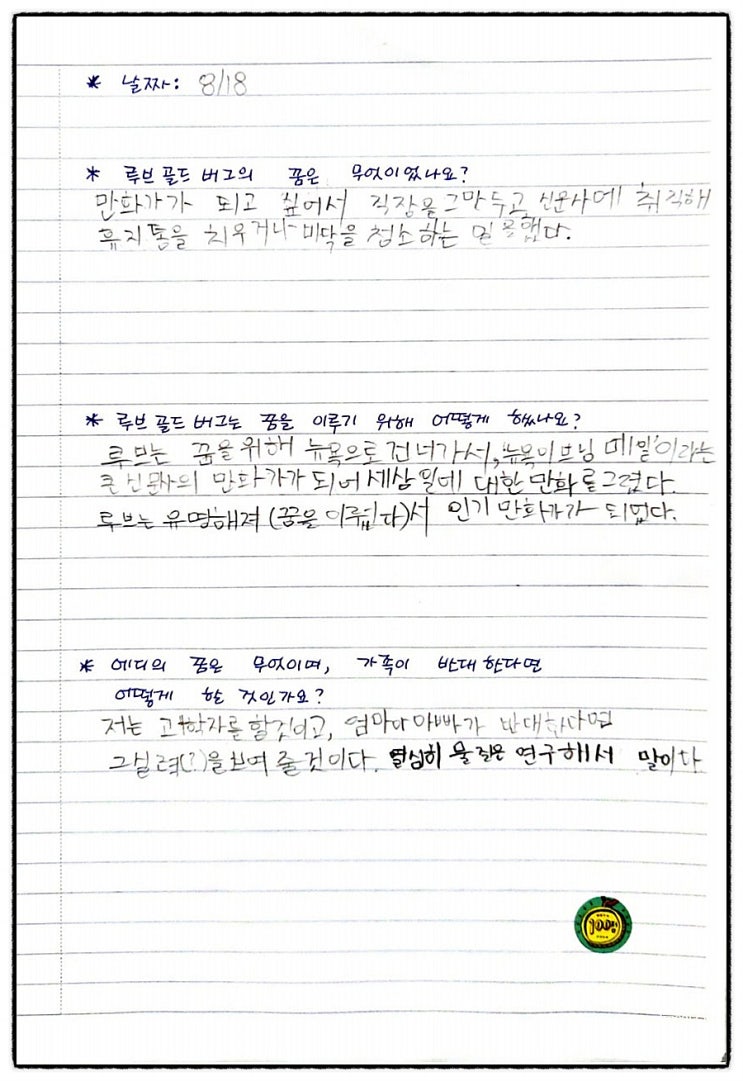 * 날짜: 8/18
* 루브 골드 버그의 꿈은 무엇이었나요?
만화가가 되고 싶어서 직장을 그만 두고 신문사에 취직해
휴지통을 치우거나 바닥을 청소하는 일을 했다.
* 루브 골드 버그는 꿈을 이루기 위해 어떻게 했나요?
루브는 꿈을 위해 뉴욕으로 건너가서, '뉴욕이브닝 메일'이라는
큰 신문사의 만화가가 되어 세상 일에 대한 만화를 그렸다.
루브는 유명해져 (꿈을 이뤘다)서 인기 만화가가 되었다.
* 에디의 꿈은 무엇이며, 가족이 반대 한다면
어떻게 할 것인가요?
저는 과학자를 할것이고, 엄마나 아빠가 반대한다면
그 실력(?)을 보여 줄 것이다. 열심히 물질은 연구해서 말이다
100%